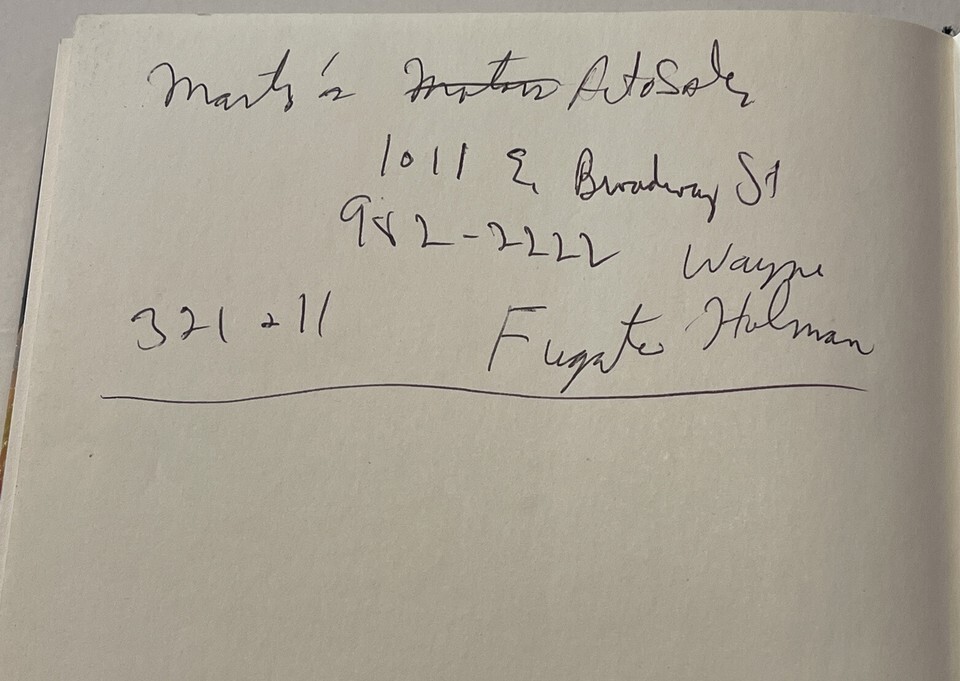 Marty's Motors AutoSales
1011 E. Broadway St
982-2222 Wayne
321 211 Fugate Holman